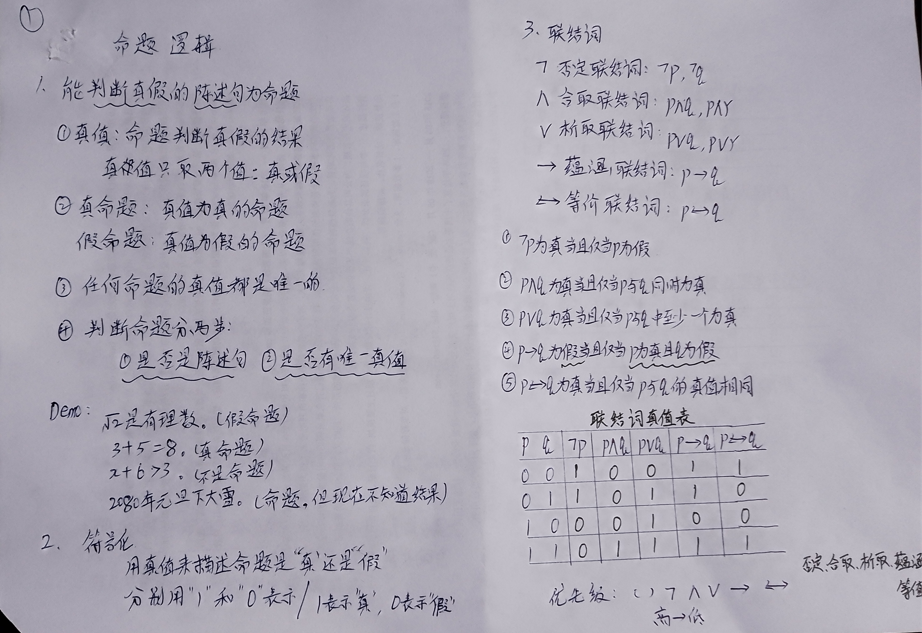 ①
命题 逻辑
1. 能判断真假的陈述句为命题
① 真值：命题判断真假的结果
真值只取两个值：真或假
② 真命题：真值为真的命题
假命题：真值为假的命题
③ 任何命题的真值都是唯一的.
④ 判断命题分两步：
①是否是陈述句 ②是否有唯一真值
Demo：√2是有理数。（假命题）
3+5=8。（真命题）
x+6>3。（不是命题）
2080年元旦下大雪。（命题，但现在不知道结果）
2. 符号化
用真值来描述命题是“真”还是“假”
分别用“1”和“0”表示/1表示“真”，0表示“假”
3. 联结词
¬ 否定联结词：¬p, ¬q
∧ 合取联结词：p∧q, p∧r
∨ 析取联结词：p∨q, p∨r
→ 蕴涵联结词：p→q
↔ 等价联结词：p↔q
① ¬p为真当且仅当p为假
② p∧q为真当且仅当p与q同时为真
③ p∨q为真当且仅当p与q中至少一个为真
④ p→q为假当且仅当p为真且q为假
⑤ p↔q为真当且仅当p与q的真值相同
联结词真值表
p q ¬p p∧q p∨q p→q p↔q
0 0 1 0 0 1 1
0 1 1 0 1 1 0
1 0 0 0 1 0 0
1 1 0 1 1 1 1
否定、合取、析取、蕴涵
等值
优先级：( ) ¬ ∧ ∨ → ↔
高→低